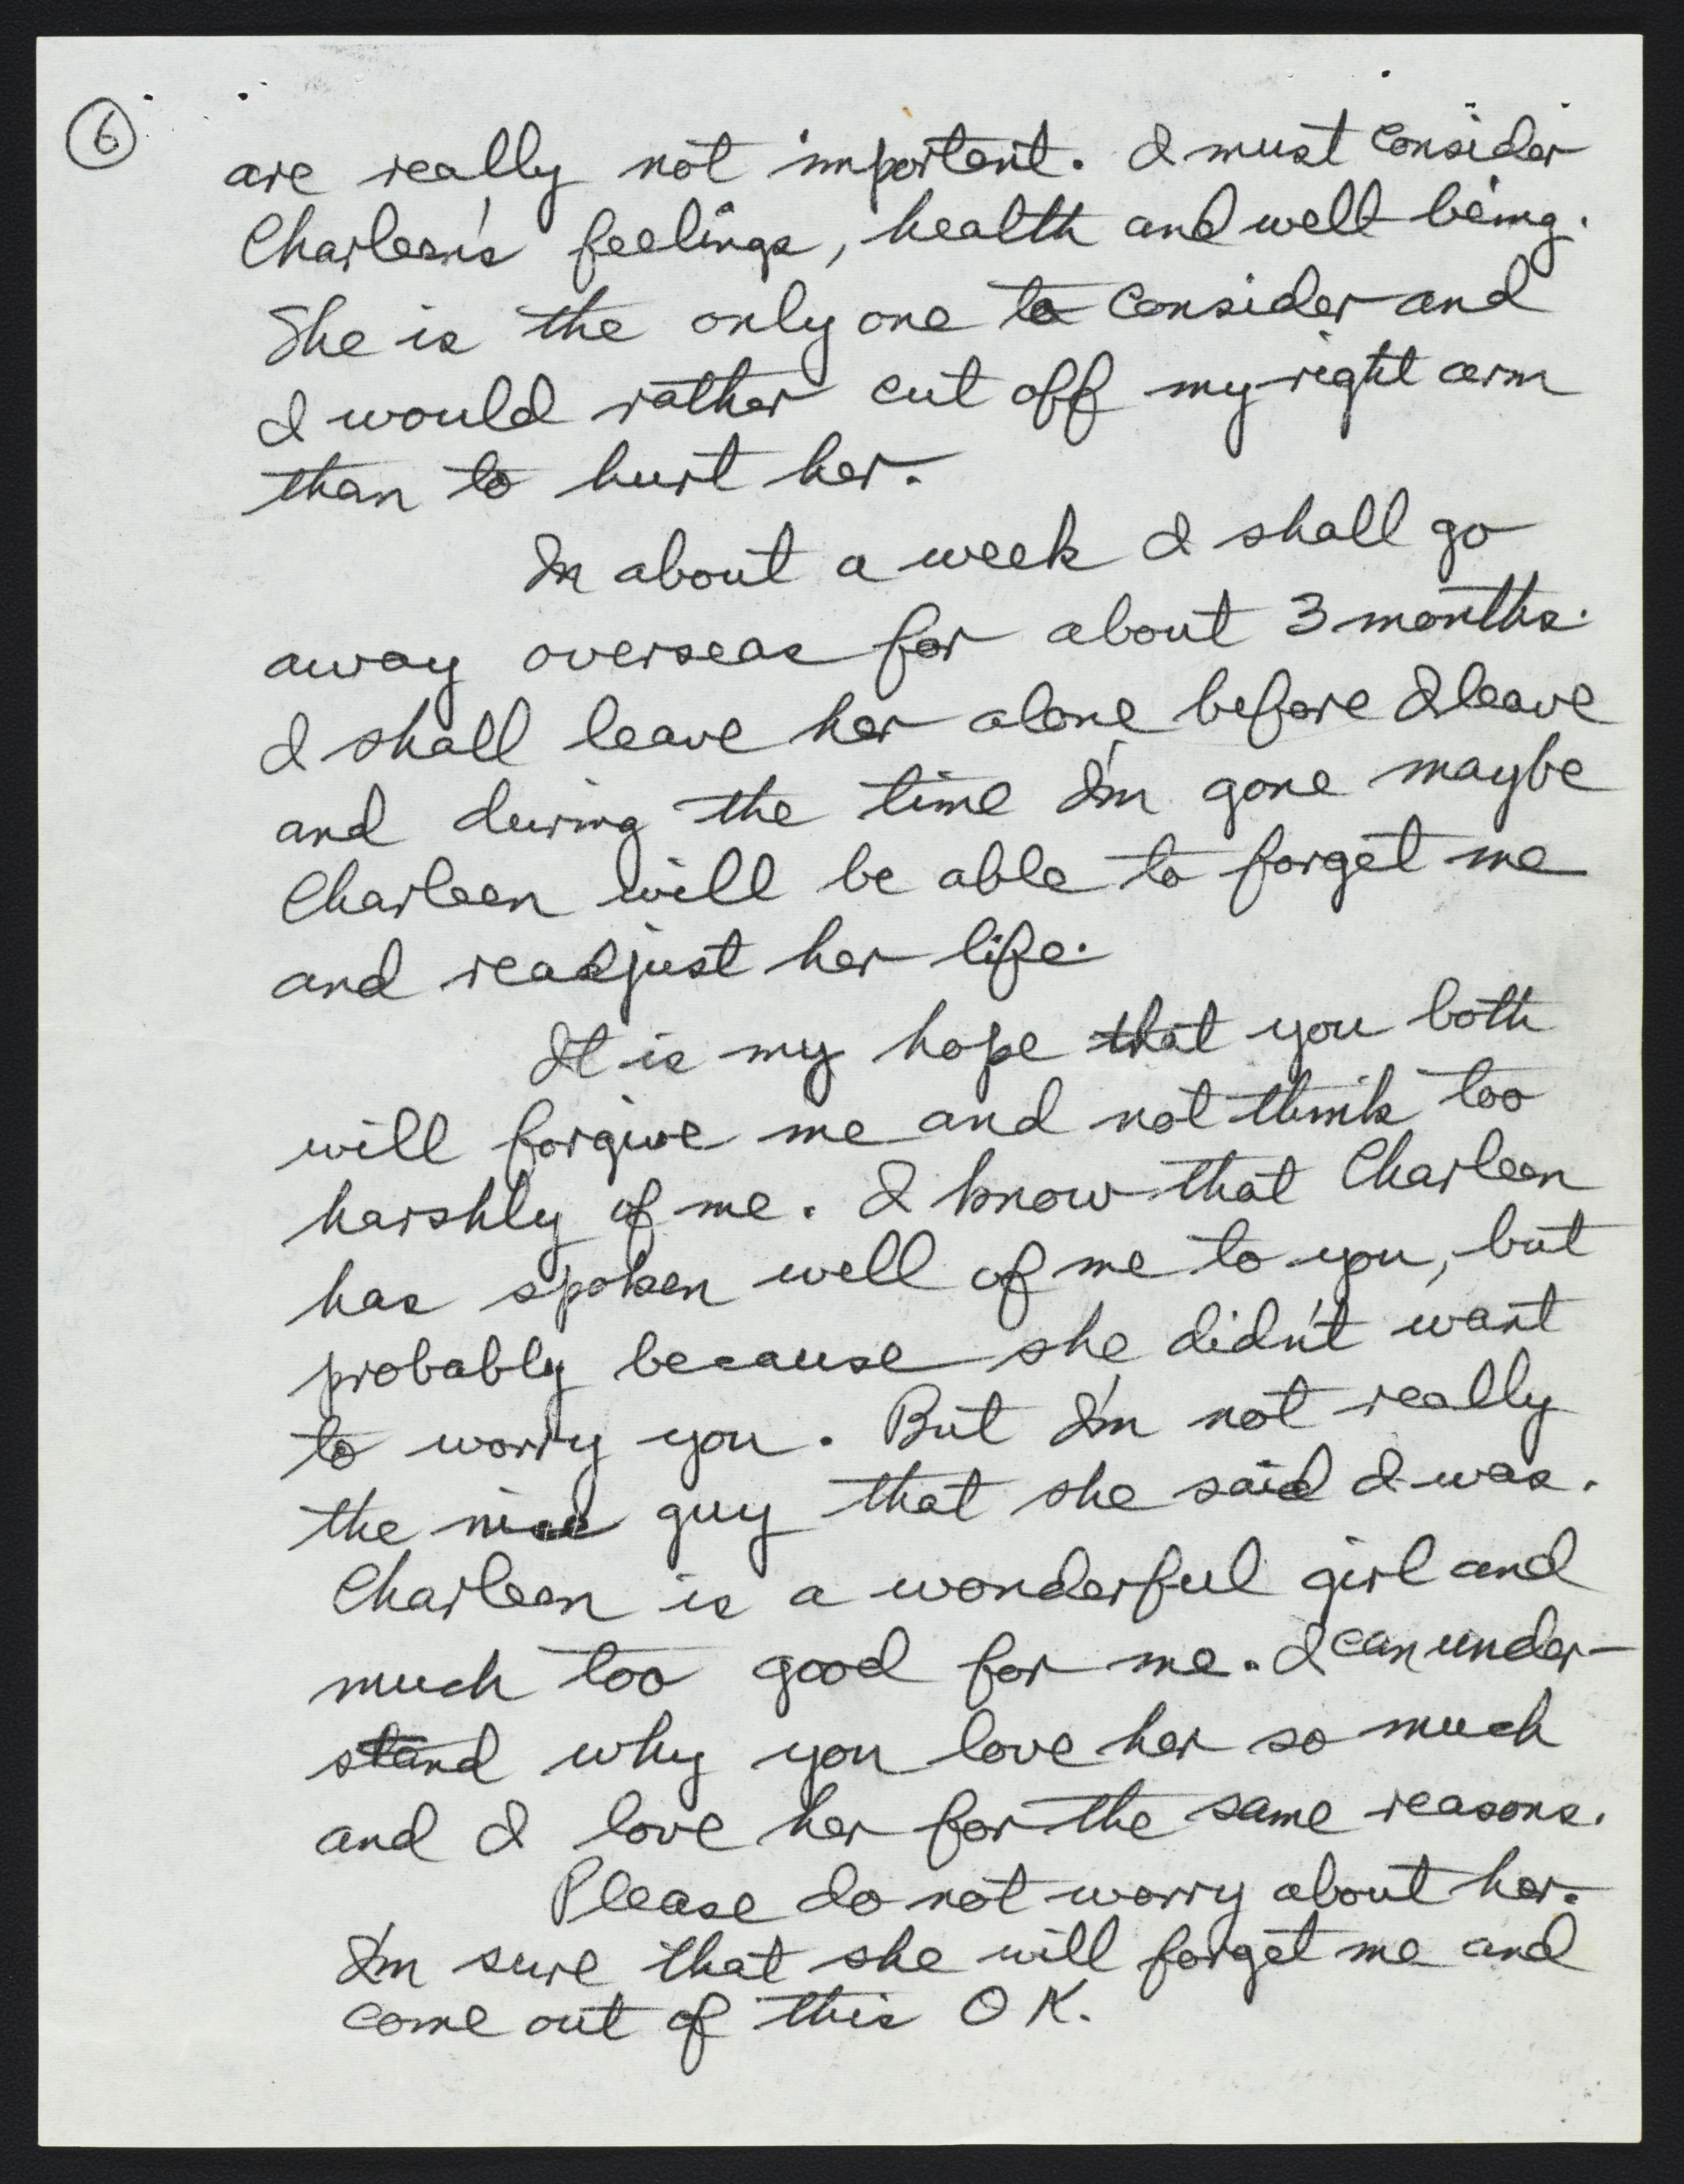 6
are really not important. I must consider
Charleen's feelings, health and well being.
She is the only one to consider and
I would rather cut off my right arm
than to hurt her.
In about a week I shall go
away overseas for about 3 months.
I shall leave her alone before I leave
and during the time I'm gone maybe
Charleen will be able to forget me
and readjust her life.
It is my hope that you both
will forgive me and not think too
harshly of me. I know that Charleen
has spoken well of me to you, but
probably because she didn't want
to worry you. But I'm not really
the nice guy that she said I was.
Charleen is a wonderful girl and
much too good for me. I can under-
stand why you love her so much
and I love her for the same reasons.
Please do not worry about her.
I'm sure that she will forget me and
come out of this OK.